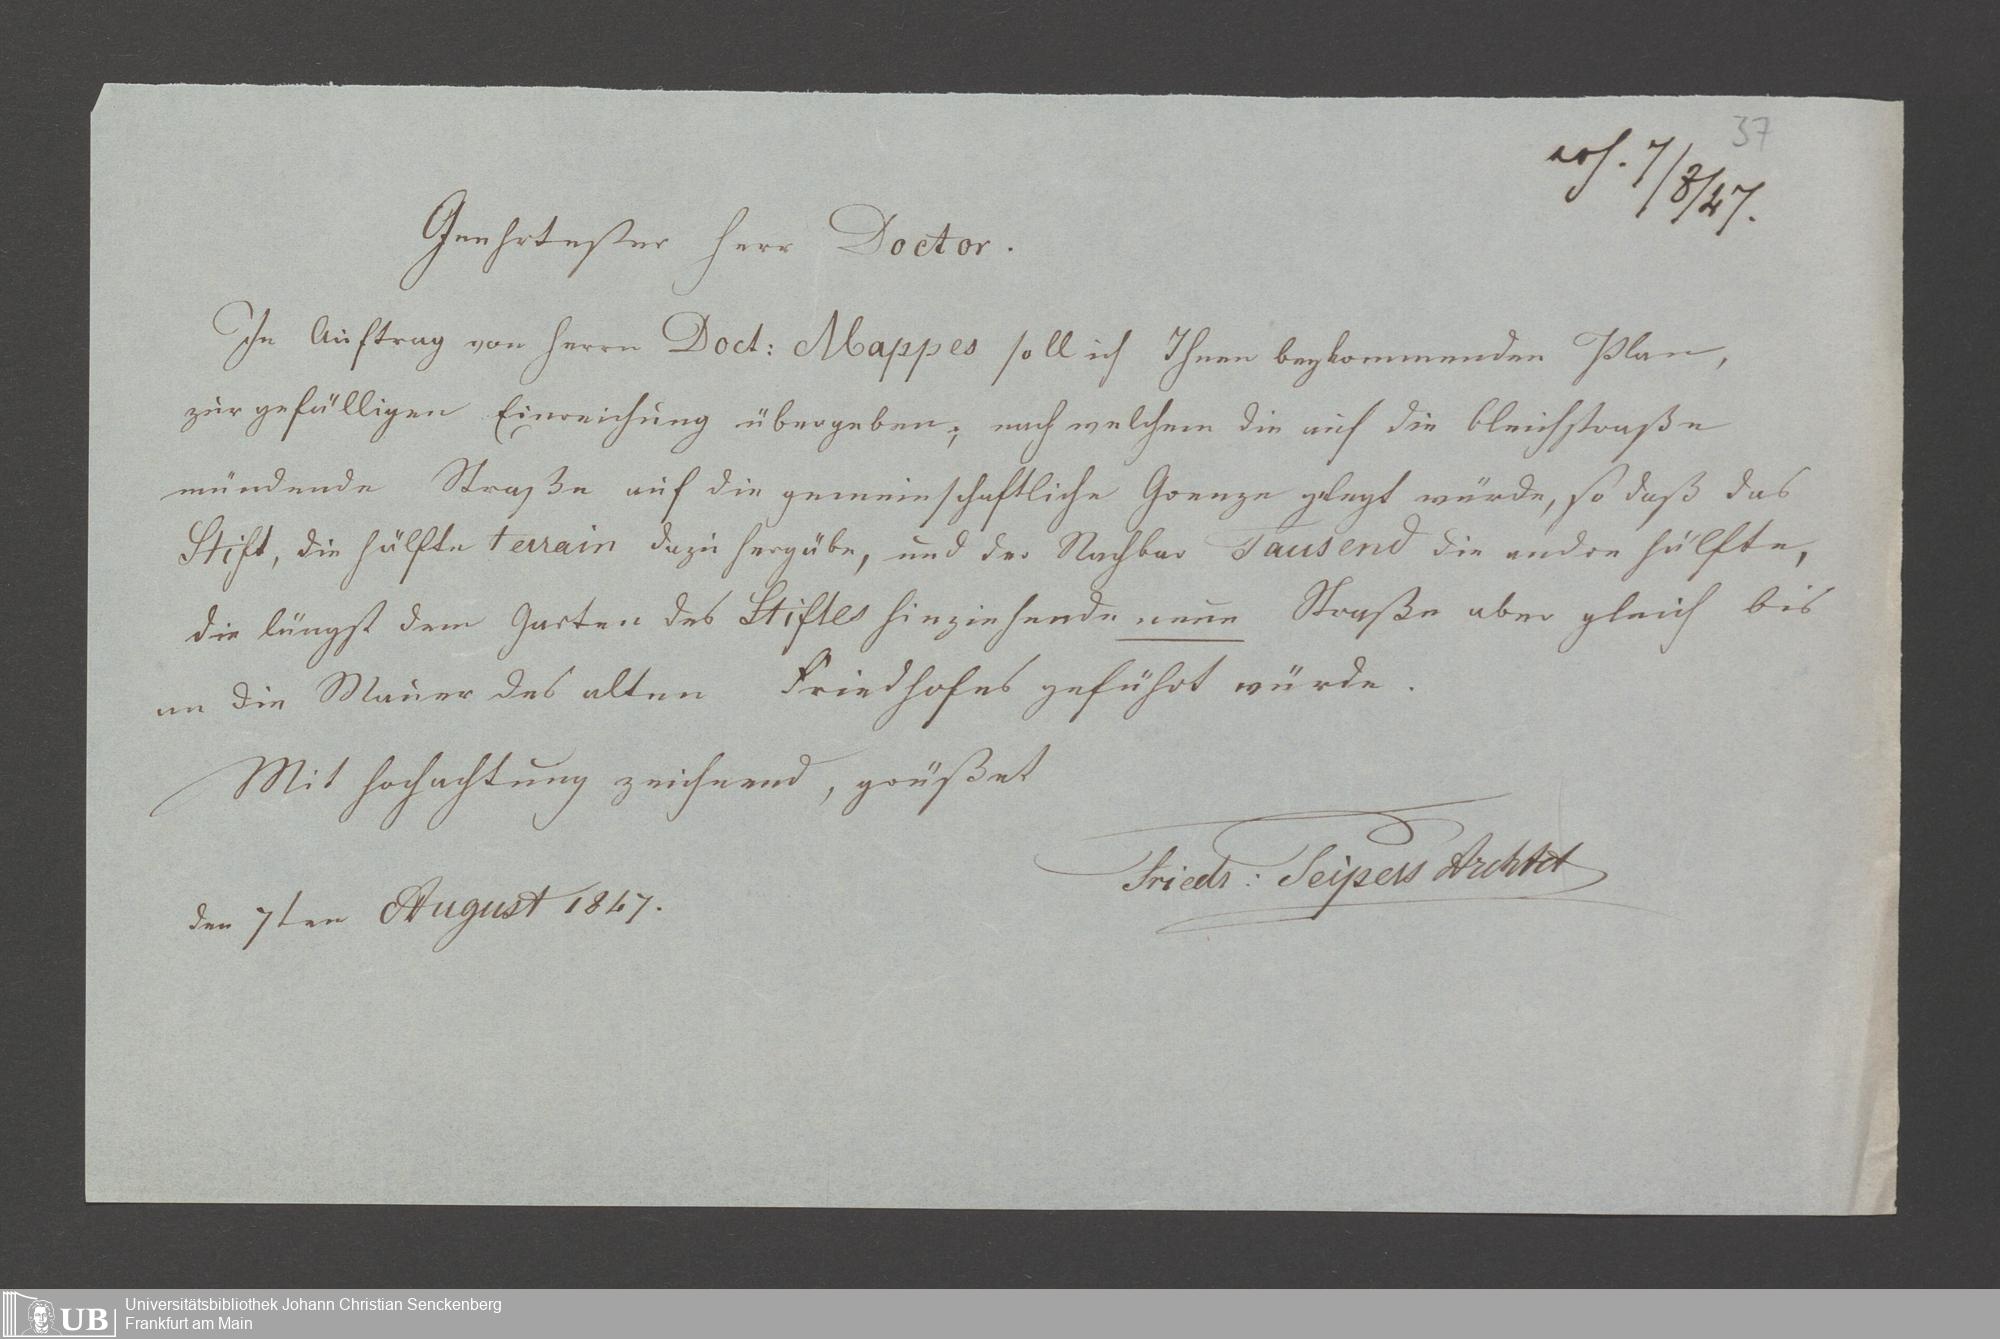 37
erh. 7/8/47.
Geehrtester Herr Doctor.
In Auftrag von Herrn Doct: Mappes soll ich Ihnen beykommenden Plan,
zur gefälligen Einreichung übergeben; nach welchem die auf die Bleichstraße
mündende Straße auf die gemeinschaftliche Grenze gelegt würde, so daß das
Stift, die Hälfte terrain dazu hergäbe, und der Nachbar Tausend die andre Hälfte,
die längst dem Garten des Stiftes hinziehende neue Straße aber gleich bis
an die Mauer des alten Friedhofes geführt würde.
Mit Hochachtung zeichnend, grüßet
Friedr: Seipels Archtct
den 7ten August 1847.
UB Universitätsbibliothek Johann Christian Senckenberg
Frankfurt am Main